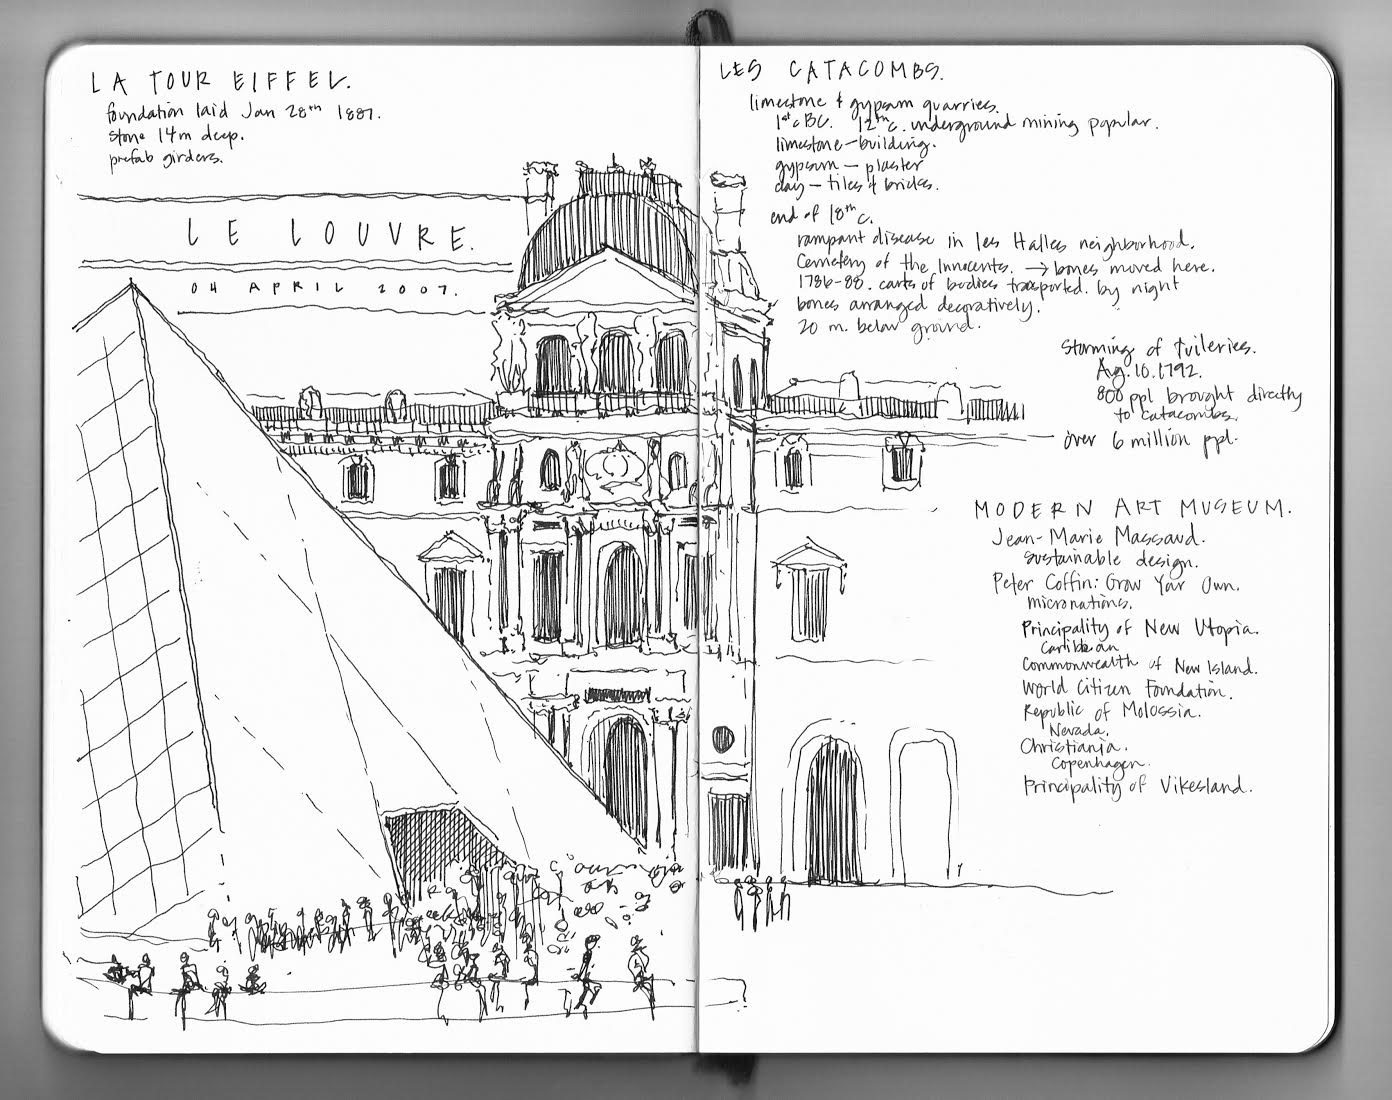 LA TOUR EIFFEL.
foundation laid Jan 28th 1887.
stone 14m deep.
prefab girders.
LE LOUVRE.
04 APRIL 2007.
LES CATACOMBS.
limestone & gypsum quarries.
1st c BC. 12th c. underground mining popular.
limestone - building.
gypsum - plaster
clay - tiles & bricks.
end of 18th c.
rampant disease in les Halles neighborhood.
Cemetery of the Innocents. → bones moved here.
1786-88. carts of bodies transported by night
bones arranged decoratively.
20 m. below ground.
Storming of Tuileries.
Ag. 10. 1792.
800 ppl brought directly
to catacombs.
over 6 million ppl.
MODERN ART MUSEUM.
Jean-Marie Massaud.
sustainable design.
Peter Coffin: Grow Your Own.
micronations.
Principality of New Utopia.
Caribbean
Commonwealth of New Island.
World Citizen Foundation.
Republic of Molossia.
Nevada.
Christiania.
Copenhagen.
Principality of Vikesland.